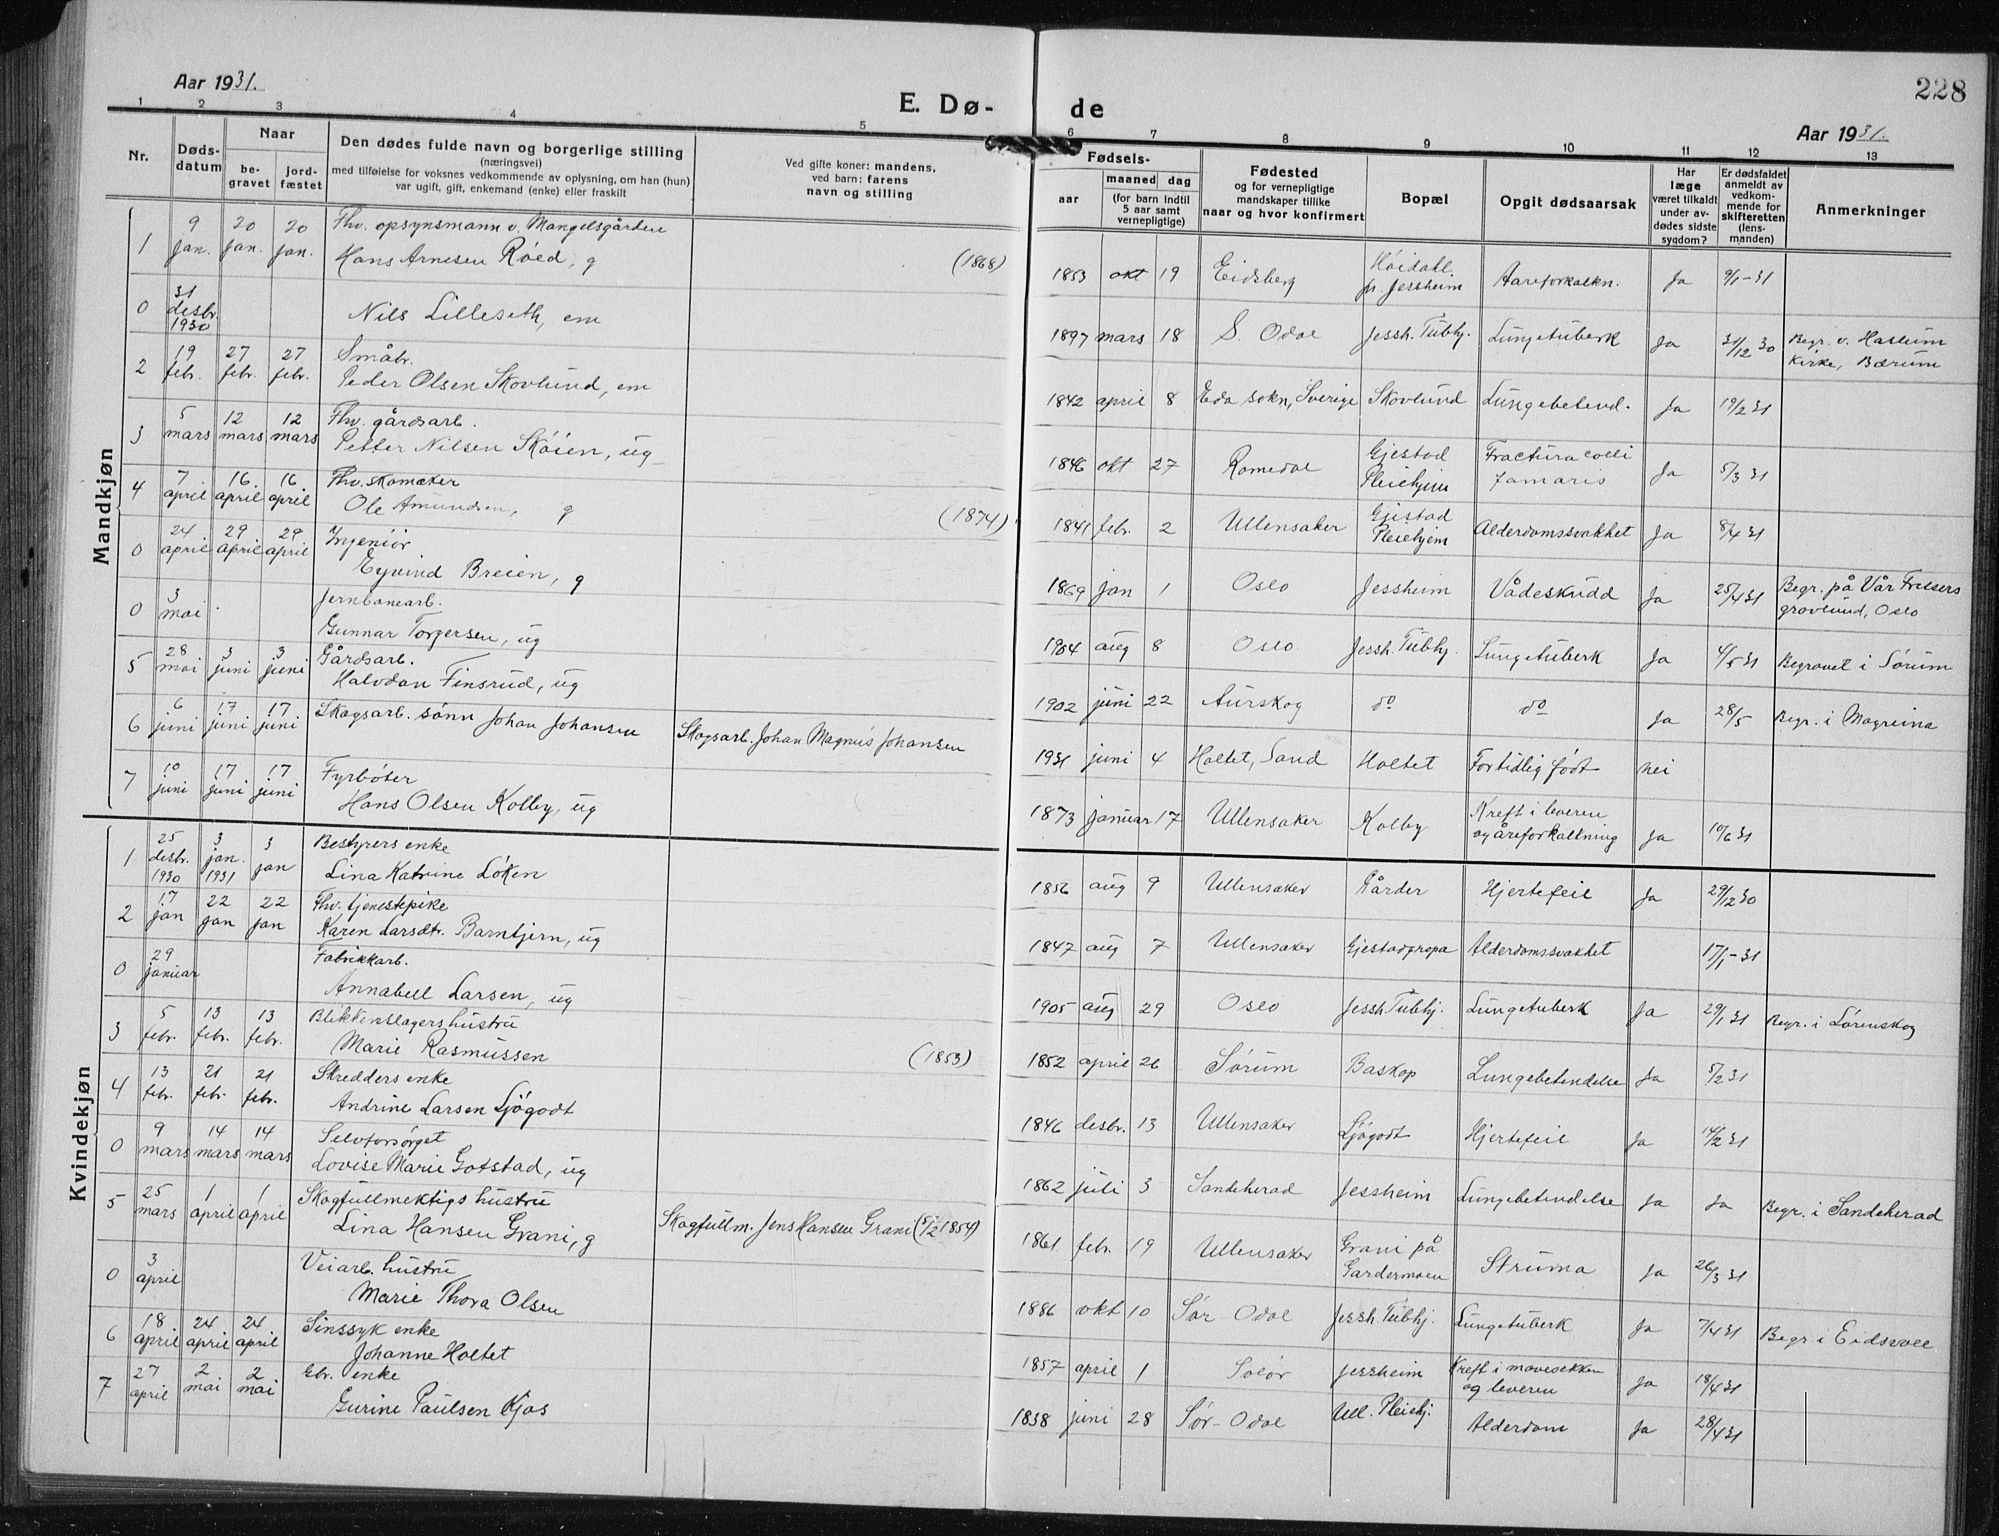 228
Aar 1931.
E. Dø-de
Aar 1931.
1 2 3 4 5 6 7 8 9 10 11 12 13
Nr.
Døds-datum
Naar
be-gravet
jord-fæstet
Den dødes fulde navn og borgerlige stilling
(næringsvei)
med tilføielse for voksnes vedkommende av oplysning, om han (hun)
var ugift, gift, enkemand (enke) eller fraskilt
Ved gifte koner: mandens,
ved barn: farens
navn og stilling
Fødsels-
aar
maaned dag
(for barn indtil
5 aar samt
vernepligtige)
Fødested
og for vernepligtige
mandskaper tillike
naar og hvor konfirmert
Bopæl
Opgit dødsaarsak
Har
læge
været tilkaldt
under av-
dødes sidste
sygdom?
Er dødsfaldet
anmeldt av
vedkom-
mende for
skifteretten
(lens-
manden)
Anmerkninger
Mandkjøn
1 9 jan. 20 jan. 20 jan. Fhv. opsynsmann v. Mangelsgården
Hans Arnesen Röed, g (1868) 1853 okt 19 Eidsberg Höidahl pr. Jessheim Aareforkalkn. Ja 9/1-31
0 31 desbr. 1930 Nils Lilleseth, em 1897 mars 18 S. Odal Jessh. Tubhj. Lungetuberk Ja 31/12 30 Begr. v. Haslum kirke, Bærum
2 19 febr. 27 febr. 27 febr. Småbr.
Peder Olsen Skovlund, em 1842 april 8 Eda sokn, Sverige Skovlund Lungebetend. Ja 19/2 31
3 5 mars 12 mars 12 mars Fhv. gårdsarb.
Petter Nilsen Sköien, ug 1846 okt 27 Romedal Gjestad Pleiehjem Fractura colli famaris Ja 5/3 31
4 7 april 16. april 16. april Fhv. skomaker
Ole Amundsen, g (1874) 1841 febr. 2 Ullensaker Gjestad Pleiehjem Alderdomssvakhet Ja 8/4 31
0 24 april 29 april 29 april Ingeniör
Eyvind Breien, g 1869 jan 1 Oslo Jessheim Vådeskudd Ja 25/4 31 Begr. på Vår Frelsers gravlund, Oslo
0 3 mai Jernbanearb.
Gunnar Torgersen, ug 1904 aug 8 Oslo Jessh. Tubhj. Lungetuberk Ja 4/5 31 Begravet i Sörum
5 28 mai 3 juni 3 juni Gårdsarb.
Halvdan Finsrud, ug 1902 juni 22 Aurskog do do Ja 28/5 Begr. i Mogreina
6 6 juni 17 juni 17 juni Skogsarb. sönn Johan Johansen Skogsarb. Johan Magnus Johansen 1931 juni 4 Holtet, Sand Holtet For tidlig födt nei
7 10 juni 17 juni 17 juni Fyrböter
Hans Olsen Kolby, ug 1873 januar 17 Ullensaker Kolby Kreft i leveren og åreforkalkning Ja 10/6 31
Kvindekjøn
1 25 desbr. 1930 3 jan. 1931 3 jan Bestyrers enke
Lina Katrine Löken 1856 aug 9 Ullensaker Gårder Hjertefeil Ja 29/12 30
2 17 jan 22 jan 22 jan Fhv. tjenestepike
Karen Larsdtr. Barntjern, ug 1847 aug 7 Ullensaker Gjestadgropa Alderdomssvakhet 17/1-31
0 29 januar Fabrikkarb.
Annabell Larsen, ug 1905 aug 29 Oslo Jessh Tubhj. Lungetuberk Ja 29/1 31 Begr. i Lörenskog
3 5 febr. 13 febr. 13 febr. Blikkenslagers hustru
Marie Rasmussen (1853) 1852 april 26 Sörum Baskop Lungebetendelse Ja 5/2 31
4 13 febr. 21 febr. 21 febr. Skredders enke
Andrine Larsen Ljögodt 1846 desbr. 13 Ullensaker Ljögodt Hjertefeil Ja 14/2 31
0 9 mars 14 mars 14 mars Selvforsörget
Lovise Marie Gotstad, ug 1862 juli 3 Sandeherad Jessheim Lungebetendelse Ja Ja Begr. i Sandeherad
5 25 mars 1 april 1 april Skogfullmektigs hustru
Lina Hansen Grani, g Skogfullm. Jens Hansen Grani (5/2 1854) 1861 febr. 19 Ullensaker Grani på Gardermoen Struma Ja 26/3 31
0 3 april Veiarb. hustru
Marie Thora Olsen 1886 okt 10 Sör-Odal Jessh. Tubhj. Lungetuberk Ja 7/4 31 Begr i Eidsvoll
6 18 april 24 april 24 april Sinssyk enke
Johanne Holtet 1857 april 1 Solör Jessheim Kreft i mavesekken og leveren Ja 18/4 31
7 27 april 2 mai 2 mai Gbr. enke
Gurine Paulsen Kjos 1838 juni 28 Sör-Odal Ull. Pleiehj. Alderdom Ja 28/4 31